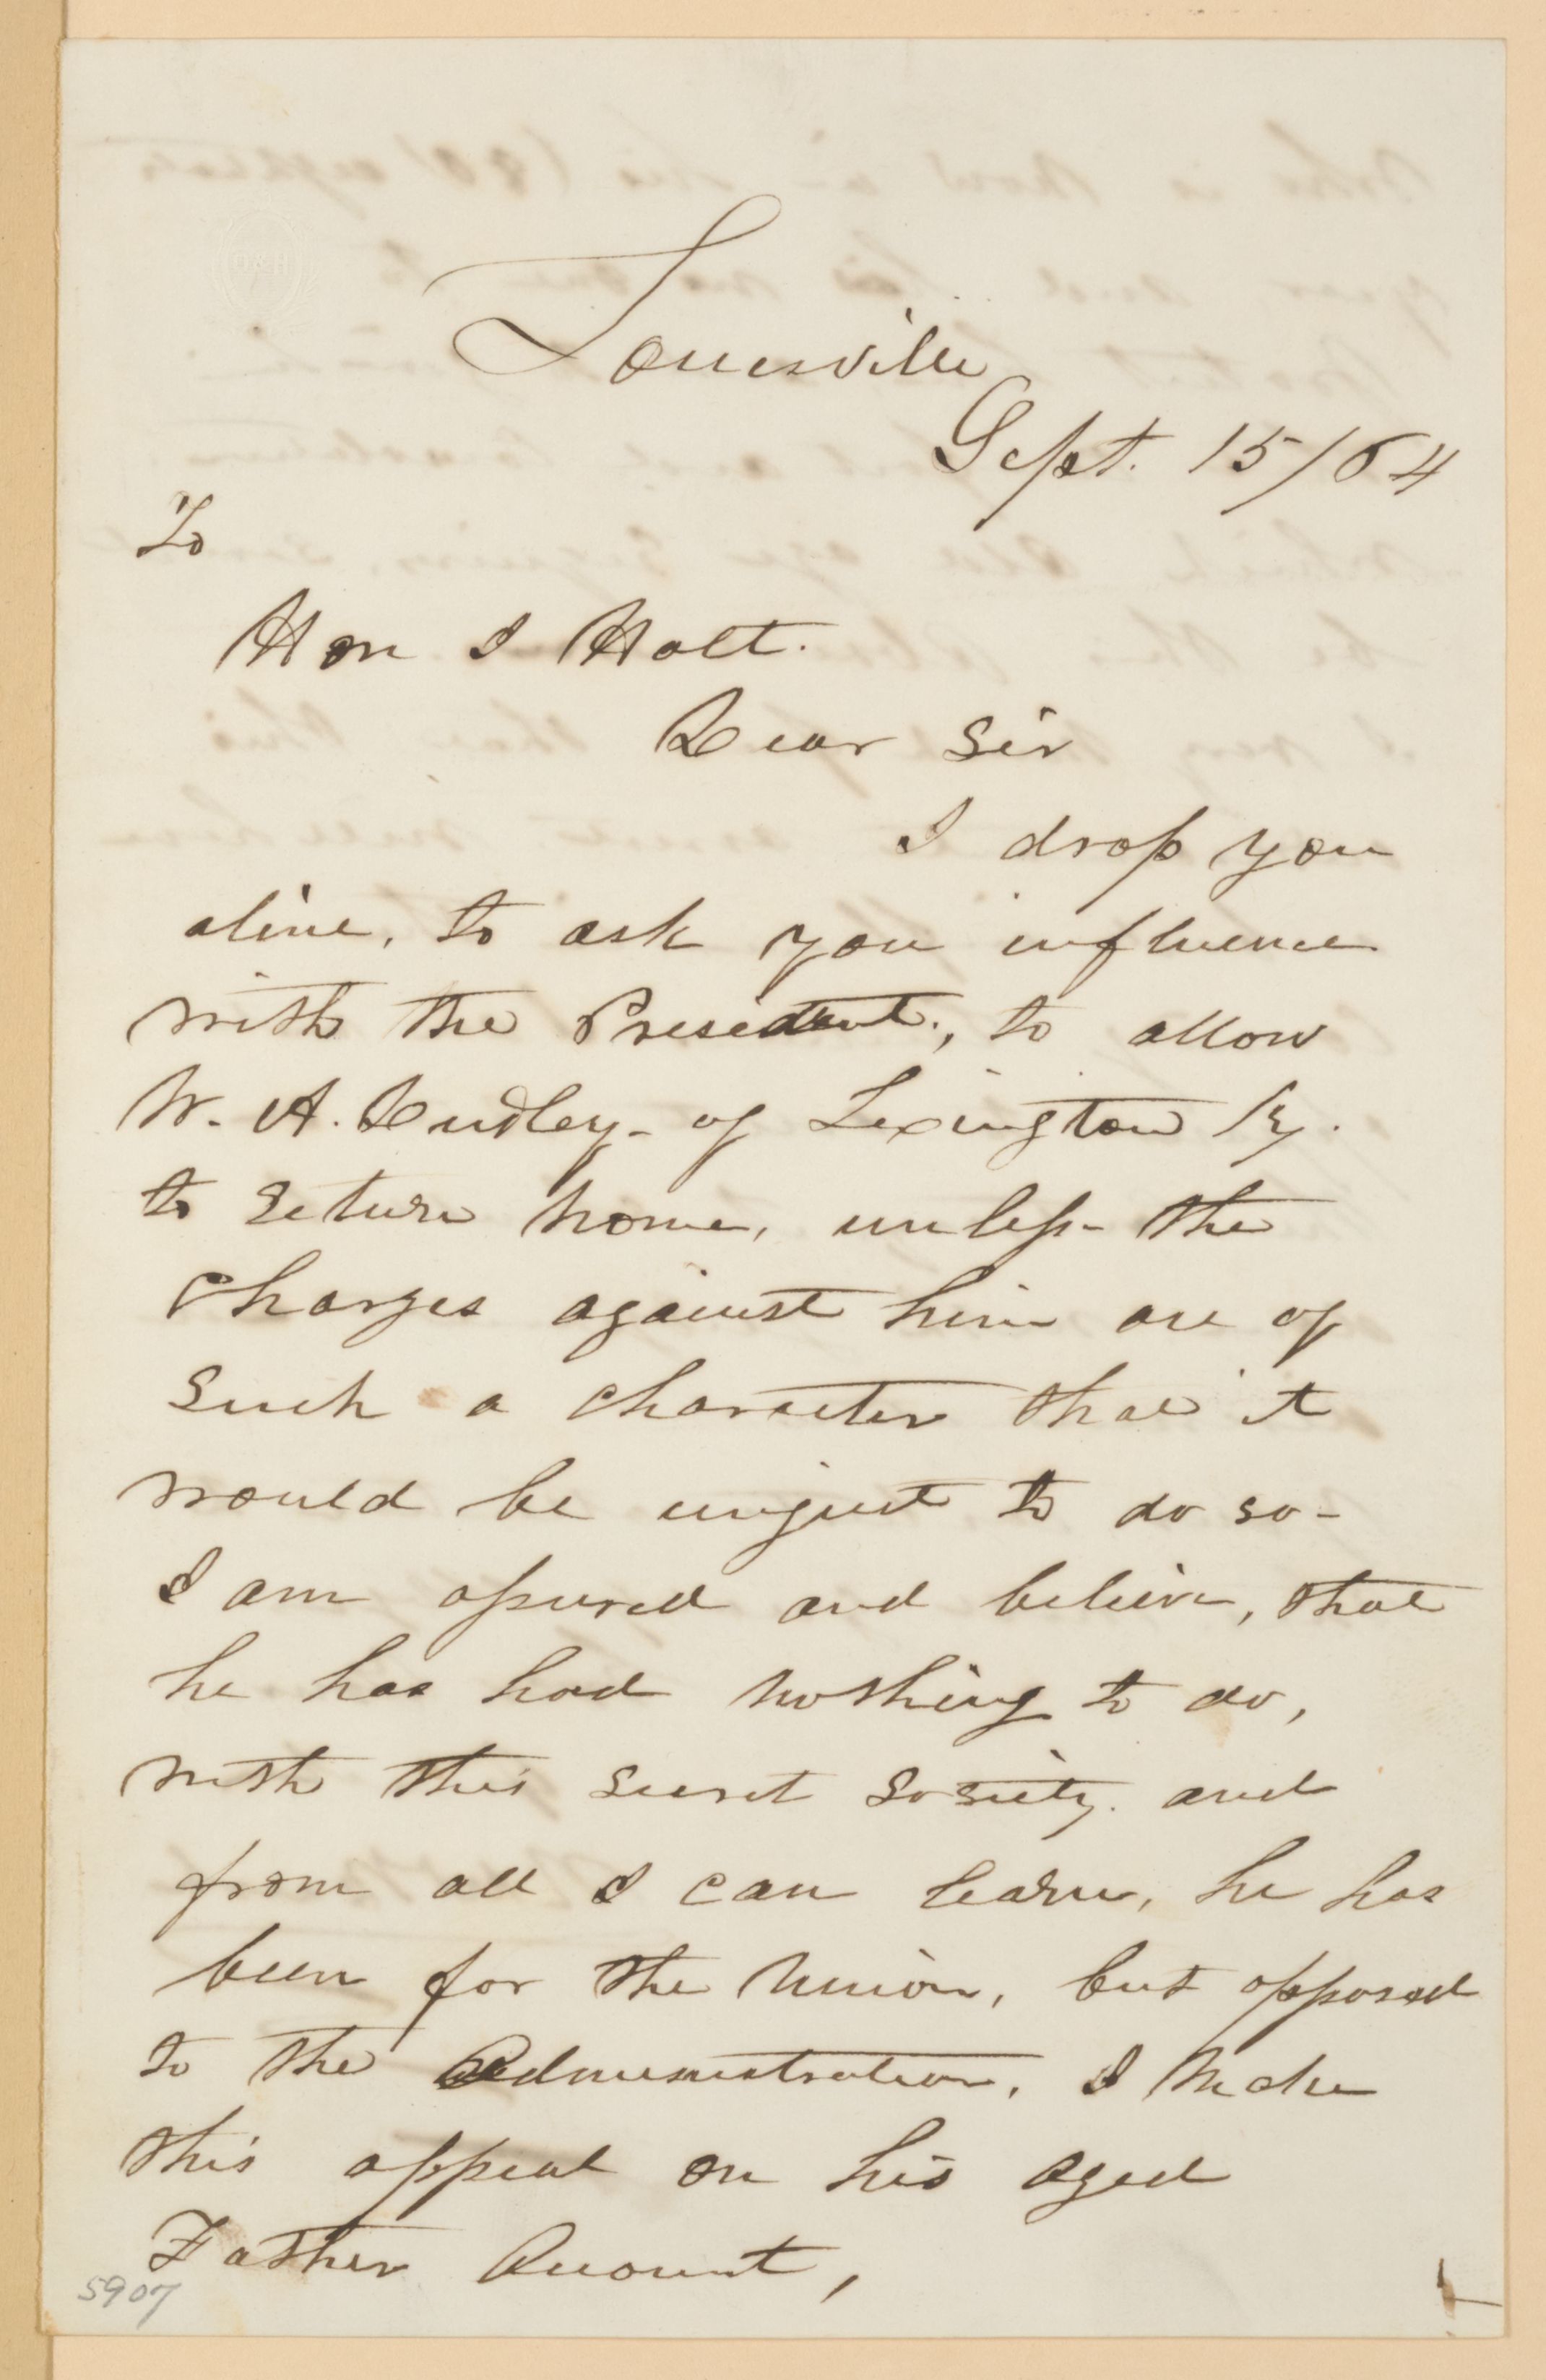 Louisville
Sept. 15/64
To
Hon J Holt.
Dear Sir
I drop you
aline, to ask you influence
with the President., to allow
W. A. Dudley- of Lexington Ky.
to return home, unless- the
Charges against him are of
Such a character that it
would be unjust to do so-
I am assured and believe, that
he has had nothing to do,
with this secret society. and
from all I can learn, he has
been for the Union, but opposed
to the Administration. I Make
this appeal on his aged
Father Account,
5907